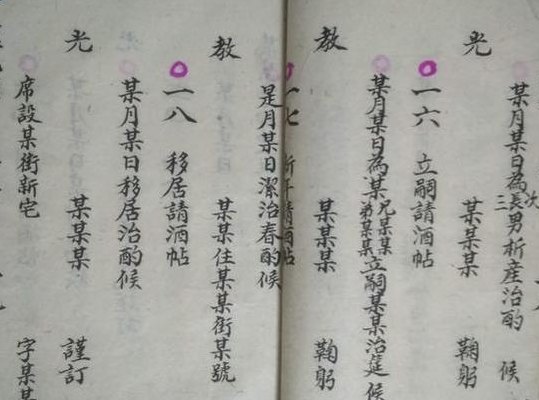 某月某日為長次三男析産治酌 候
光 某某某 鞠躬
一六 立嗣請酒帖
某月某日為某兄某某弟某某立嗣某某治筵候
教 某某某 鞠躬
一七 請酒帖
是月某日潔治春酌候
教 某某住某某街某號
一八 移居請酒帖
某月某日移居治酌候
光 某某某 謹訂
席設某街新宅 字某某